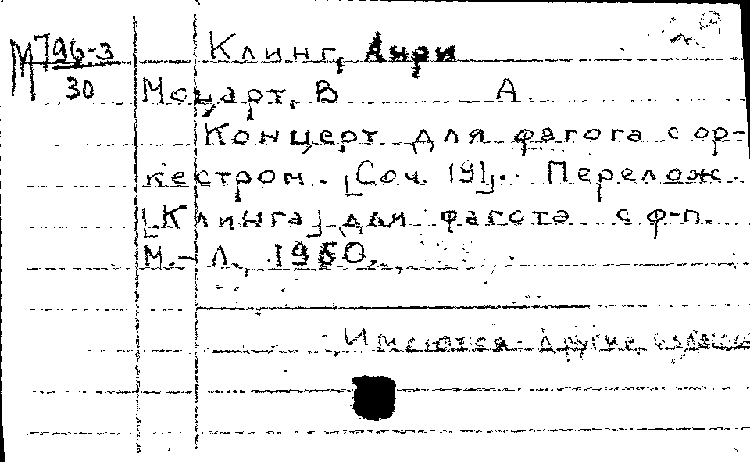 М 796-3
30
Клинг, Анри
Моцарт, В А
Концерт для фагота с ор-
кестром. [Соч. 191]. Перелож.
[Клинга] для фагота с ф-п.
М.-Л., 1950.
Имеются другие издания